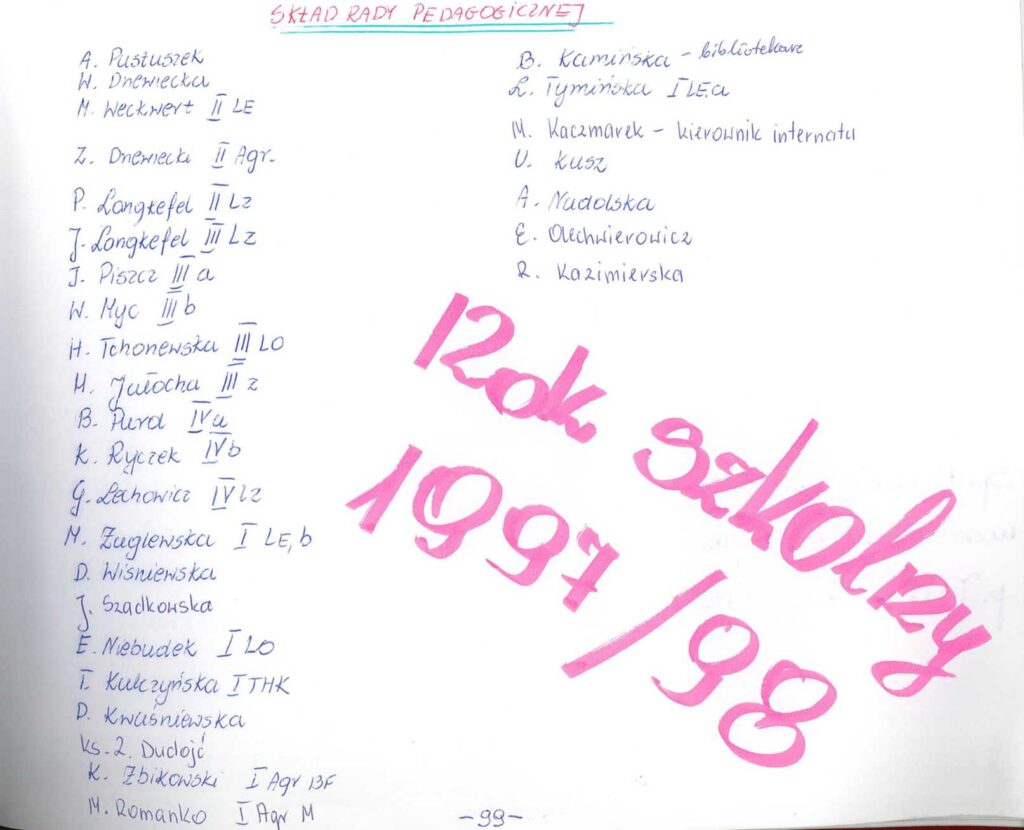 SKŁAD RADY PEDAGOGICZNEJ
A. Pustuszek
W. Drewiecka
M. Weckwert II LE
Z. Drewiecki II Agr.
P. Langkefel II Lz
J. Langkefel III Lz
J. Piszcz III a
W. Myc III b
H. Tchorzewska III LO
H. Jałocha III z
B. Purol IV a
K. Ryczek IV b
G. Lechowicz IV Lz
M. Żuglewska I LE, b
D. Wiśniewska
J. Szadkowska
E. Niebudek I LO
T. Kulczyńska I THK
D. Kwaśniewska
ks. Z. Dudojć
K. Żbikowski I Agr BF
M. Romanko I Agr M
B. Kamińska – bibliotekarz
L. Tymińska I LE.a
M. Kaczmarek – kierownik internatu
U. Kusz
A. Nadolska
E. Olechwierowicz
R. Kazimierska
Rok szkolny
1997/98
-99-